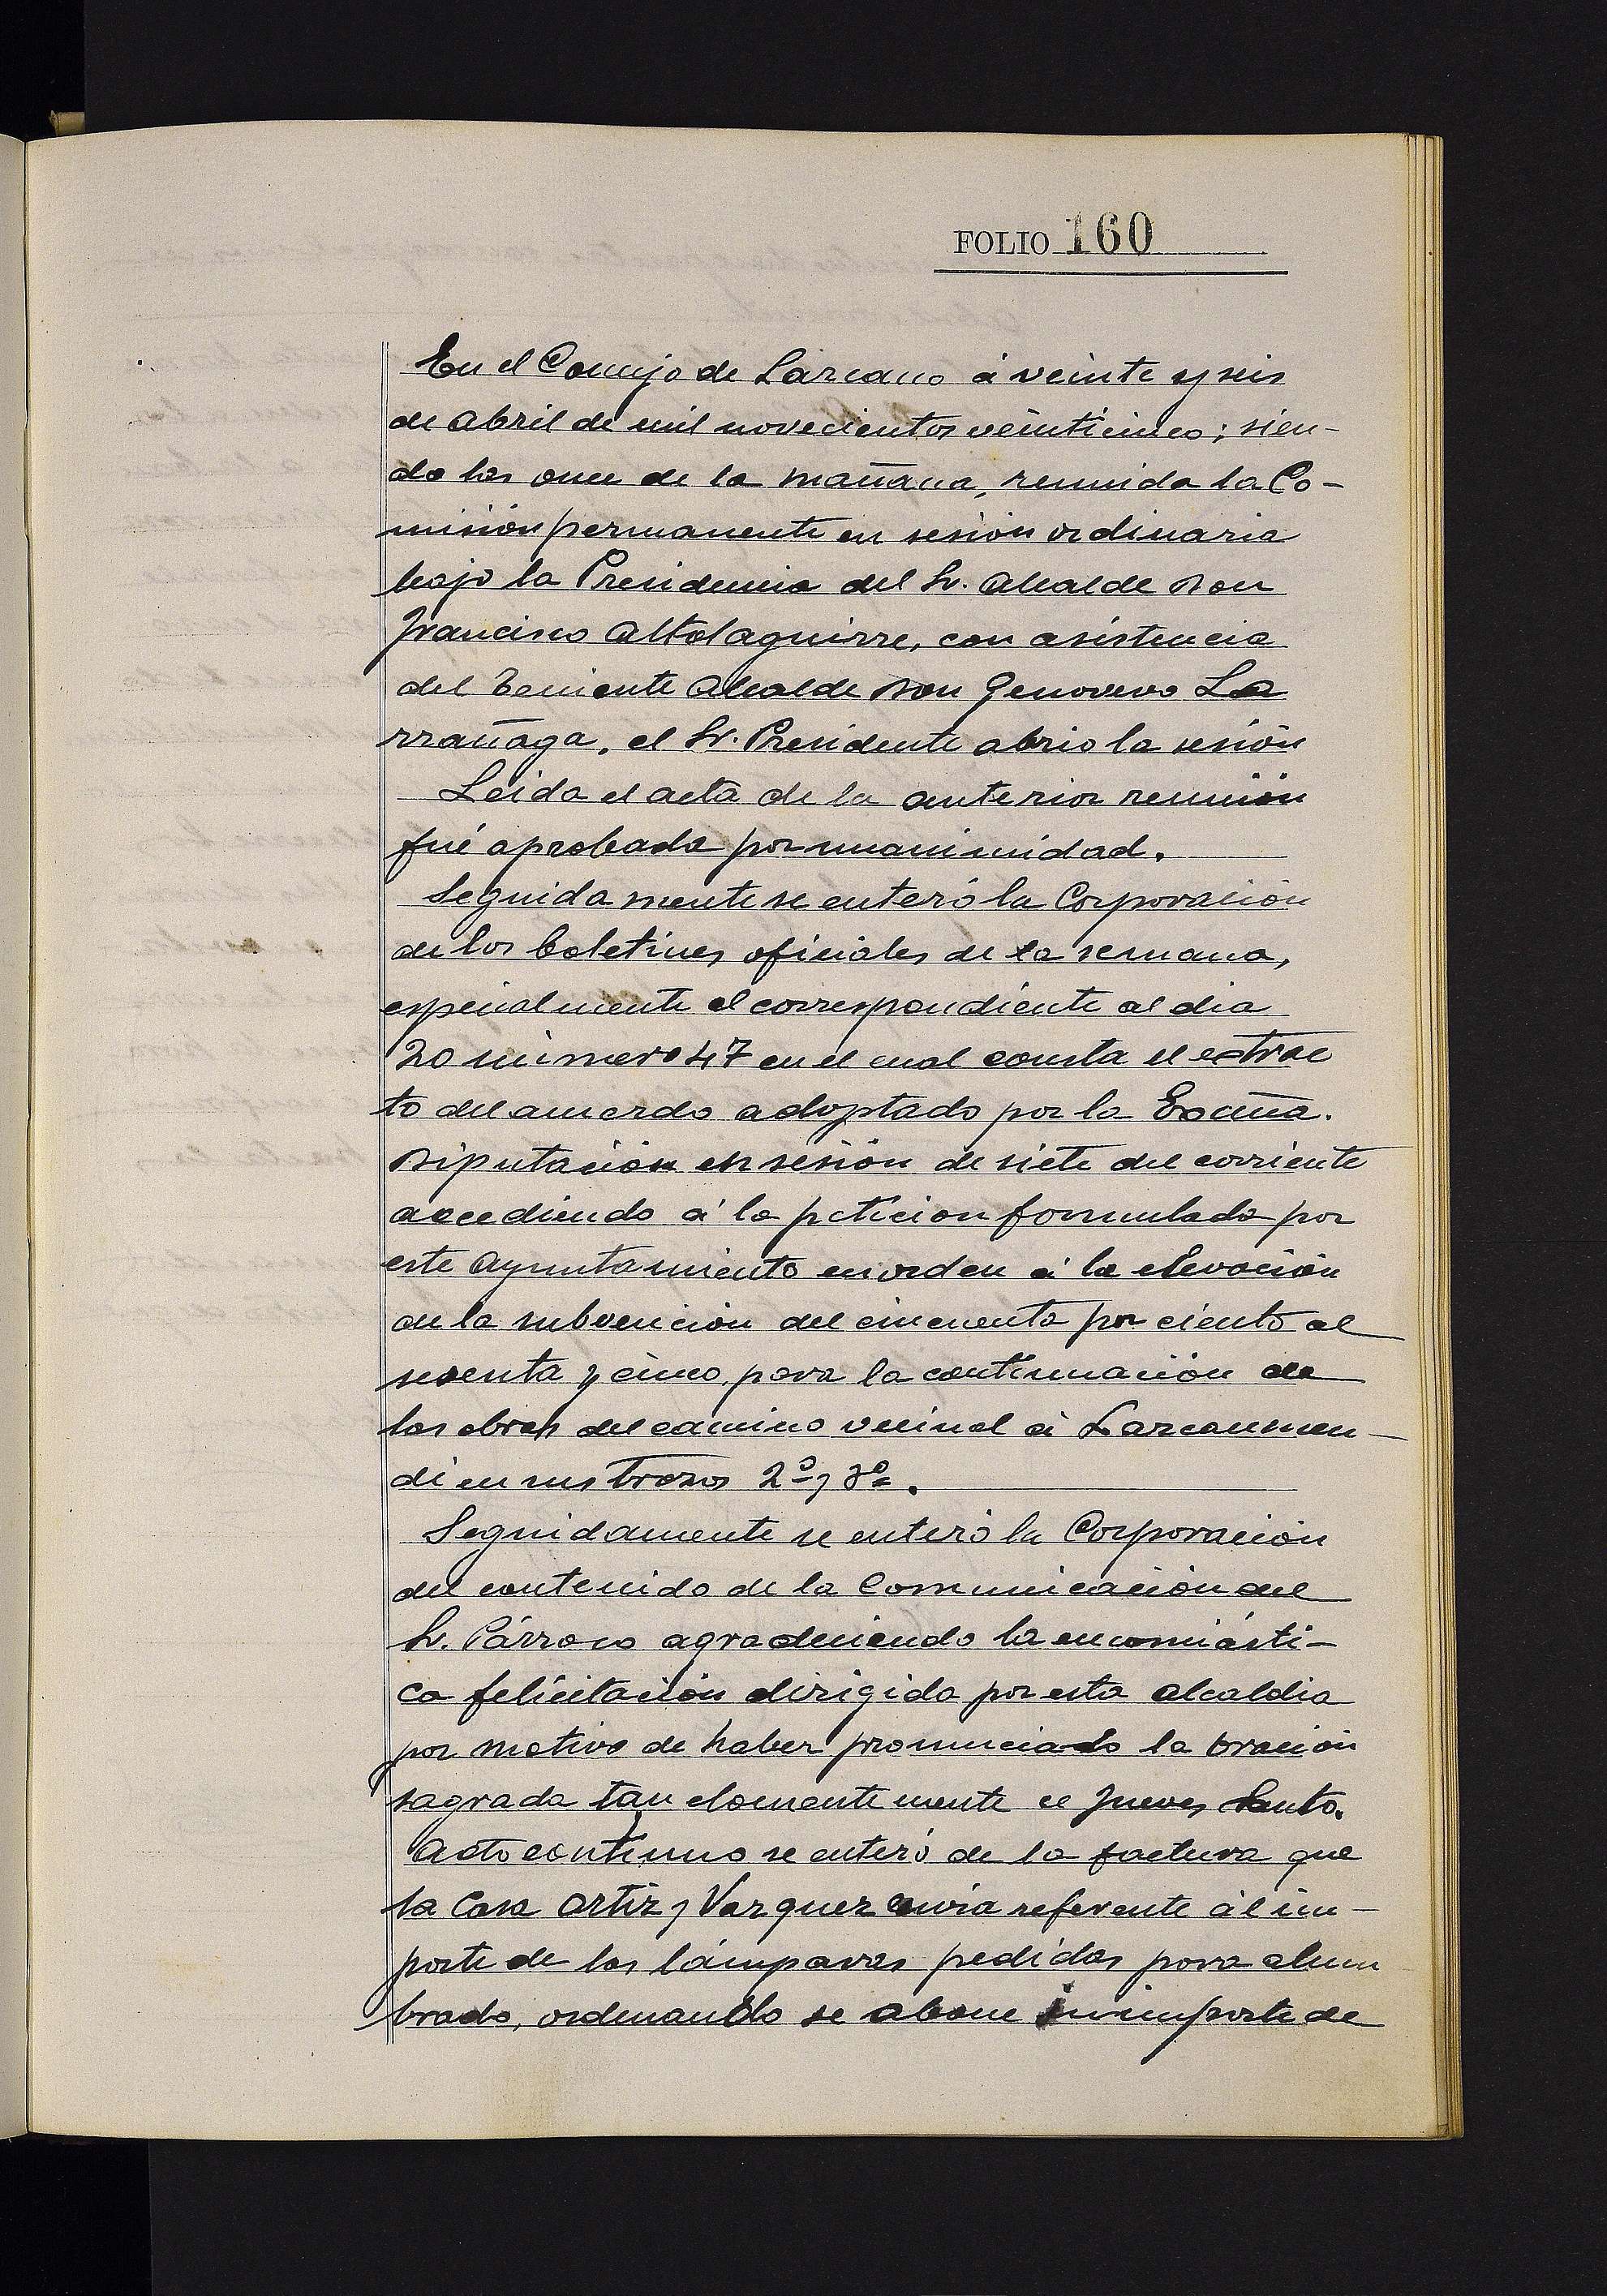 FOLIO 160
En el Concejo de Lazcano á veinte y seis
de abril de mil novecientos veinticinco; sien-
do las once de la mañana, reunida la Co-
misión permanente en sesión ordinaria
bajo la Presidencia del Sr. Alcalde Don
Francisco Altolaguirre, con asistencia
del Teniente Alcalde Don Genovevo La
rrañaga, el Sr. Presidente abrio la sesión
Leida el acta de la anterior reunión
fué aprobada por unanimidad.
Seguidamente se enteró la Corporación
de los boletines oficiales de la semana,
especialmente el correspondiente al dia
20 número 47 en el cual consta el extrac
to del acuerdo adoptado por la Excma.
Diputación en sesión de siete del corriente
accediendo á la peticion formulada por
este Ayuntamiento en orden á la elevación
de la subvencion del cincuenta por ciento al
sesenta y cinco, para la continuación de
las obras del camino vecinal á Lazcaumen-
di en sus trozos 2º y 3º.
Seguidamente se enteró la Corporación
del contenido de la Comunicación del
Sr. Párroco agradeciendo la encomiásti-
ca felicitación dirigida por esta alcaldia
por motivo de haber pronunciado la oración
sagrada tan elocuentemente el Jueves Santo.
Acto contínuo se enteró de la factura que
la Casa Ortiz y Vazquez envia referente ál im-
porte de las lámparas pedidas para alum
brado, ordenando se abone su importe de